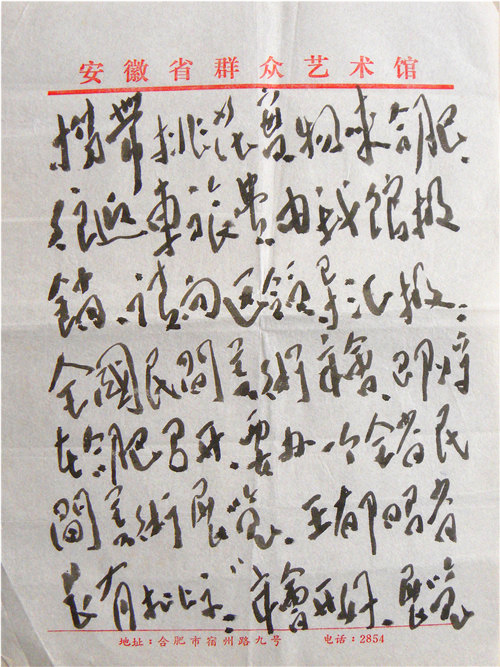 安徽省群众艺术馆
携带挑花实物来合肥，
往返车旅费由我馆报
销。请向区领导汇报：
全国民间美术年会，即将
在合肥召开，要办一个全省民
间美术展览，王郁昭省
长有批示：“年会开好，展览
地址：合肥市宿州路九号 电话：2854